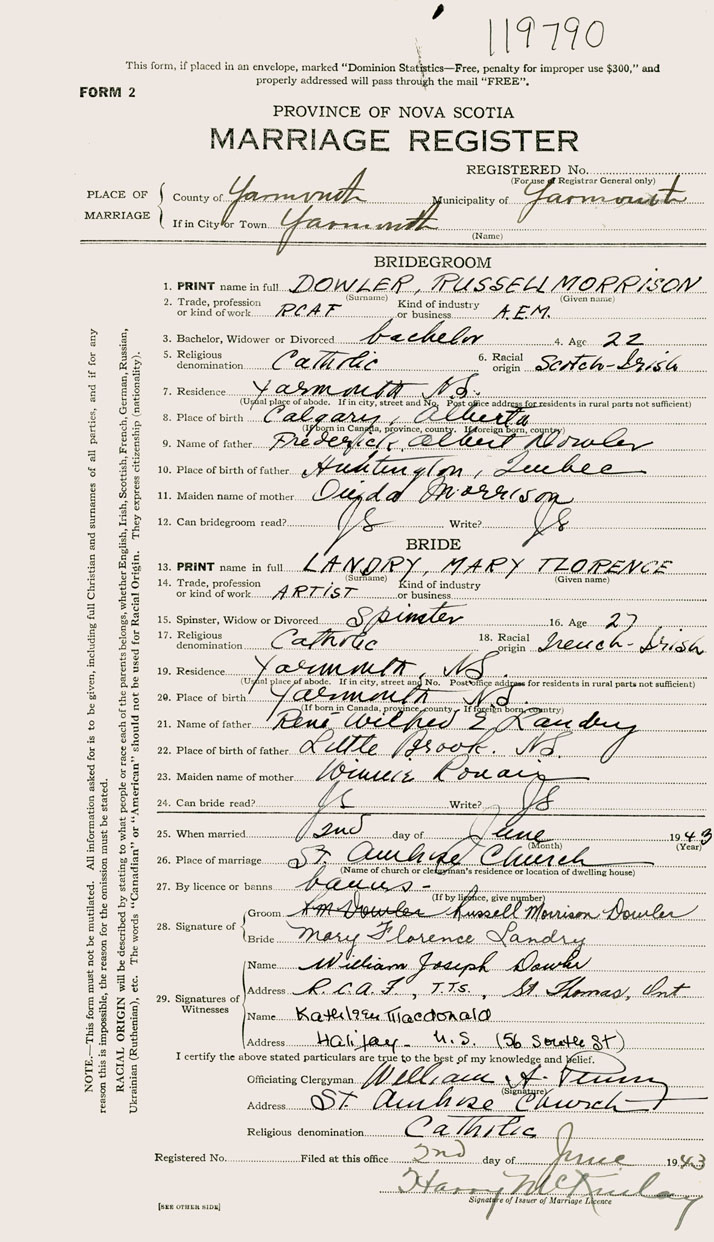 119790
This form, if placed in an envelope, marked "Dominion Statistics—Free, penalty for improper use $300," and
properly addressed will pass through the mail "FREE".
FORM 2
PROVINCE OF NOVA SCOTIA
MARRIAGE REGISTER
REGISTERED No.
(For use of Registrar General only)
PLACE OF MARRIAGE
County of Yarmouth Municipality of Yarmouth
If in City or Town Yarmouth
(Name)
BRIDEGROOM
1. PRINT name in full DOWLER, RUSSELL MORRISON
(Surname) (Given name)
2. Trade, profession or kind of work RCAF Kind of industry or business A.E.M.
3. Bachelor, Widower or Divorced bachelor 4. Age 22
5. Religious denomination Catholic 6. Racial origin Scotch-Irish
7. Residence Yarmouth N.S.
(Usual place of abode. If in city, street and No. Post office address for residents in rural parts not sufficient)
8. Place of birth Calgary, Alberta
(If born in Canada, province, county. If foreign born, country)
9. Name of father Frederick Albert Dowler
10. Place of birth of father Huntington, Quebec
11. Maiden name of mother Morrison
12. Can bridegroom read? Write?
BRIDE
13. PRINT name in full LANDRY, MARY FLORENCE
(Surname) (Given name)
14. Trade, profession or kind of work ARTIST Kind of industry or business
15. Spinster, Widow or Divorced Spinster 16. Age 27
17. Religious denomination Catholic 18. Racial origin French-Irish
19. Residence Yarmouth, N.S.
(Usual place of abode. If in city, street and No. Post office address for residents in rural parts not sufficient)
20. Place of birth Yarmouth N.S.
(If born in Canada, province, county. If foreign born, country)
21. Name of father René Wilfred E Landry
22. Place of birth of father Little Brook. N.S.
23. Maiden name of mother Winnie
24. Can bride read? Write?
25. When married 2nd day of June 1943
(Month) (Year)
26. Place of marriage St. Ambrose Church
(Name of church or clergyman's residence or location of dwelling house)
27. By licence or banns banns -
(If by licence, give number)
28. Signature of
Groom Russell Morrison Dowler
Bride Mary Florence Landry
29. Signatures of Witnesses
Name William Joseph Dowler
Address R.C.A.F., T.T.S., St. Thomas, Ont
Name Kathleen Macdonald
Address Halifax - N.S. (56 South St)
I certify the above stated particulars are true to the best of my knowledge and belief.
Officiating Clergyman William A.
(Signature)
Address St Ambrose Church
Religious denomination Catholic
Registered No. Filed at this office 2nd day of June 1943
Harry McKinley
Signature of Issuer of Marriage Licence
[SEE OTHER SIDE]
NOTE.—This form must not be mutilated. All information asked for is to be given, including full Christian and surnames of all parties, and if for any
reason this is impossible, the reason for the omission must be stated.
RACIAL ORIGIN will be described by stating to what people or race each of the parents belongs, whether English, Irish, Scottish, French, German, Russian,
Ukrainian (Ruthenian), etc. The words "Canadian" or "American" should not be used for Racial Origin. They express citizenship (nationality).